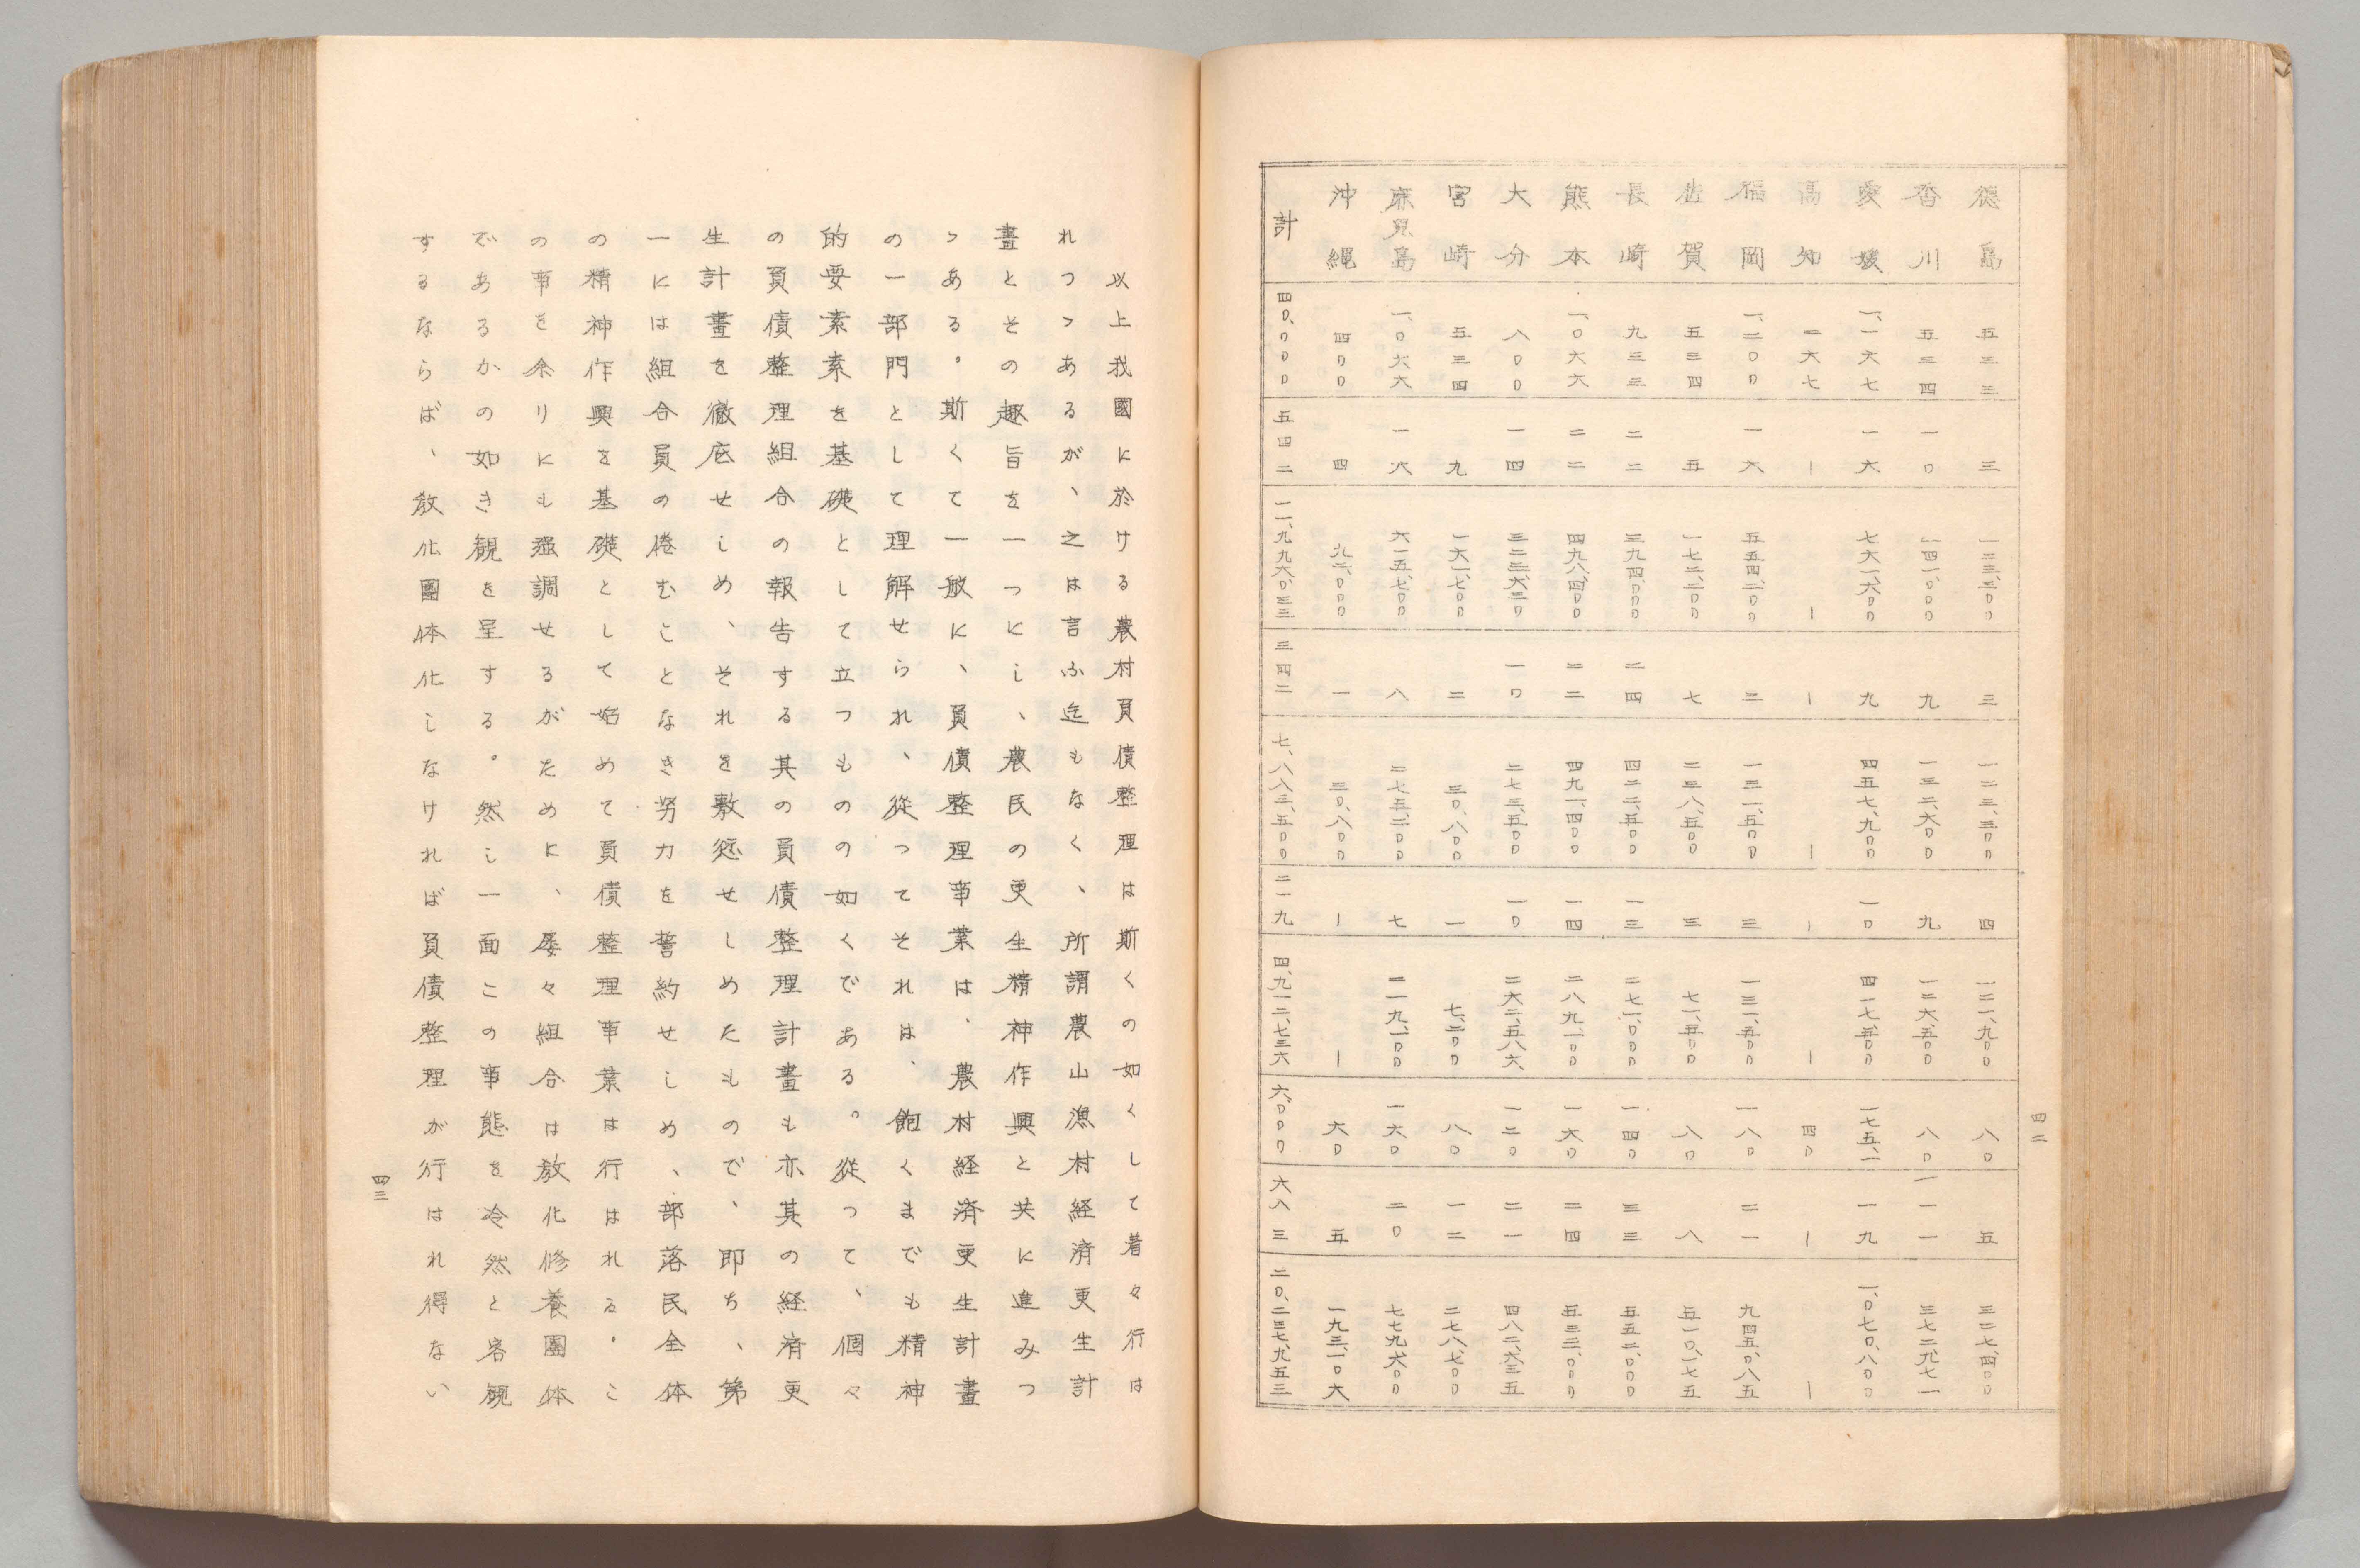 四二
徳島 五三三 三 一三三、三〇〇 三 一二三、三〇〇 四 一二一、九〇〇 八〇 五 三二七、四〇〇
香川 五三四 一〇 一四一、〇〇〇 九 一三二、六〇〇 九 一二六、五〇〇 八〇 一一 三七二、九七一
愛媛 一、一六七 一六 七六一、六〇〇 九 四五七、九〇〇 一〇 四一七、五〇〇 一七五、一 一九 一、〇七〇、八〇〇
高知 二六七 ― ― ― ― ― ― 四〇 ― ―
福岡 一、二〇〇 一六 五五四、二〇〇 三 一三一、五〇〇 三 一三一、五〇〇 一八〇 二一 九四五、〇八五
佐賀 五三四 五 一七二、二〇〇 七 二三八、五〇〇 三 七一、五〇〇 八〇 八 五一〇、一七五
長崎 九三三 二二 三九四、〇〇〇 二四 四二二、五〇〇 一三 二七一、〇〇〇 一四〇 三三 五五二、〇〇〇
熊本 一、〇六六 二二 四九八、四〇〇 二二 四九一、四〇〇 一四 二八九、一〇〇 一六〇 二四 五三二、〇〇〇
大分 八〇〇 一四 三二三、六二〇 一〇 二七三、五〇〇 一〇 二六二、五八六 一二〇 二一 四八二、六三五
宮崎 五三四 九 一六一、七〇〇 二 三〇、八〇〇 一 七、二〇〇 八〇 一二 二七八、七〇〇
鹿児島 一、〇六六 一六 六一五、七〇〇 八 二七五、二〇〇 七 二一九、一〇〇 一六〇 二〇 七七九、六〇〇
沖縄 四〇〇 四 九二、〇〇〇 一 三〇、八〇〇 ― ― 六〇 五 一九三、一〇六
計 四〇、〇〇〇 五四二 一一、九九六、〇三三 三四二 七、八八三、五〇〇 二一九 四、九一二、七三六 六、〇〇〇 六八三 二〇、二三七、九五三
以上我國に於ける農村負債整理は斯くの如くして着々行は
れつゝあるが、之は言ふ迄もなく、所謂農山漁村経済更生計
畫とその趣旨を一つにし、農民の更生精神作興と共に進みつ
ゝある。斯くて一般に、負債整理事業は、農村経済更生計畫
の一部門として理解せられ、從つてそれは、飽くまでも精神
的要素素を基礎として立つものの如くである。從つて、個々
の負債整理組合の報告する其の負債整理計畫も亦其の経済更
生計畫を徹底せしめ、それを敷衍せしめたもので、即ち、第
一には組合員の倦むことなき労力を誓約せしめ、部落民全体
の精神作興を基礎として始めて負債整理事業は行はれる。こ
の事を余りにも强調せるがために、屡々組合は教化修養團体
であるかの如き観を呈する。然し一面この事態を冷然と客観
するならば、教化團体化しなければ負債整理が行はれ得ない
四三